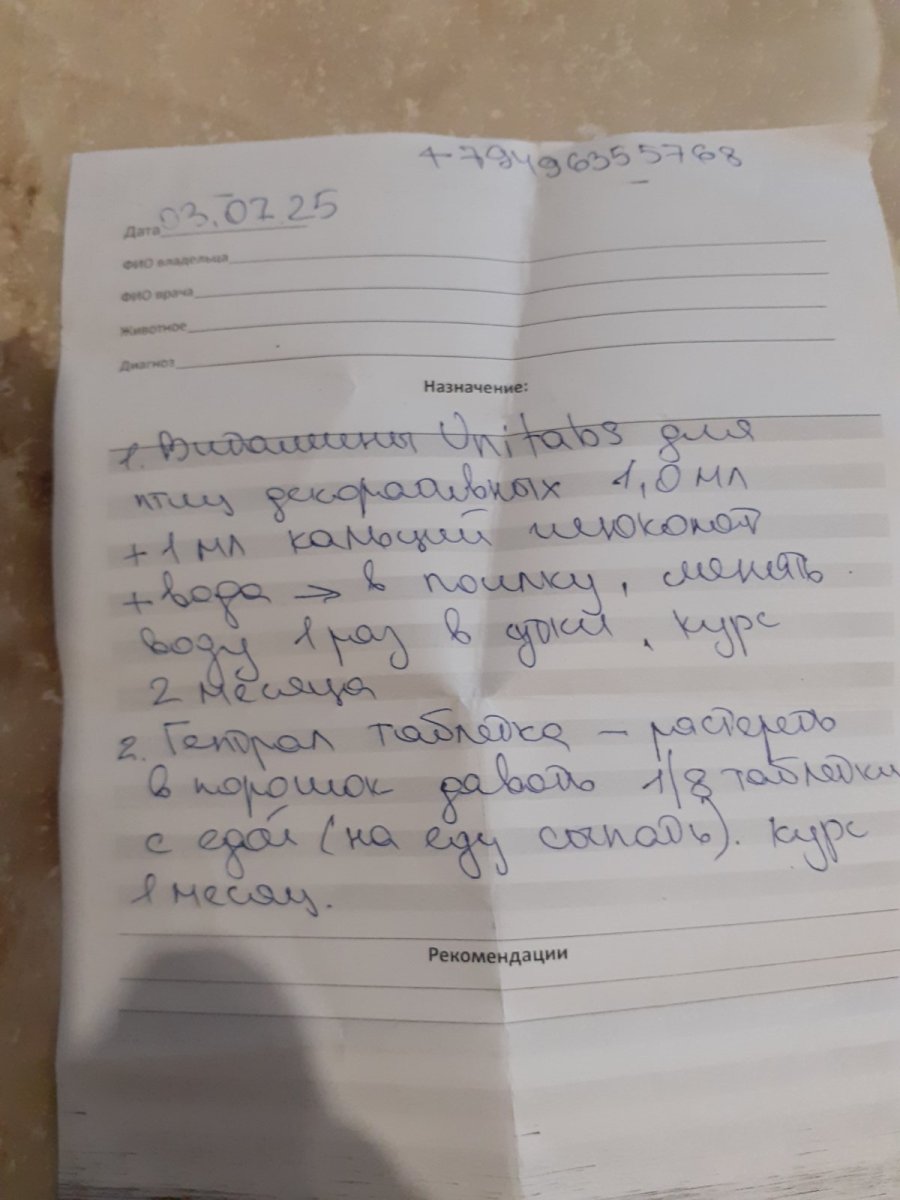 +79496355768
Дата 03.07.25
ФИО владельца
ФИО врача
Животное
Диагноз
Назначение:
1. Витамины Unitabs для
птиц декоративных 1,0 мл
+ 1 мл кальций глюконат
+ вода → в поилку, менять
воду 1 раз в сутки, курс
2 месяца
2. Гептрал таблетка – растереть
в порошок давать 1/8 таблетки
с едой (на еду сыпать). Курс
1 месяц.
Рекомендации